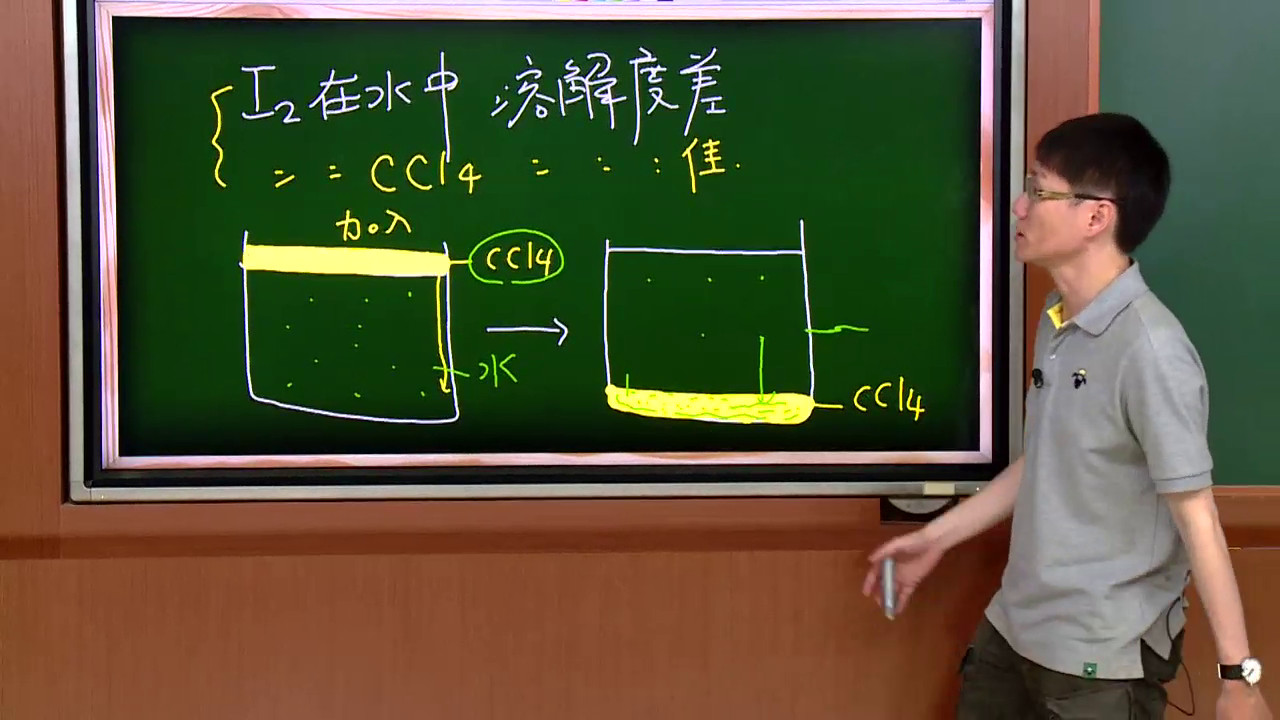 I₂在水中 溶解度差
〃 〃 CCl4 〃 〃 〃 佳.
加入
CCl4
水
CCl4